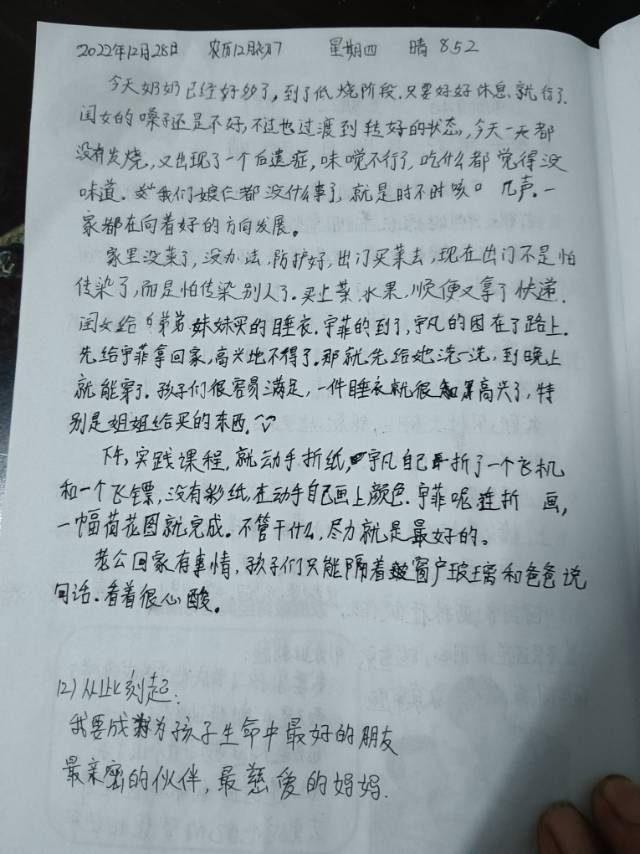 2022年12月28日 农历12月初7 星期四 晴 852
今天奶奶已经好多了，到了低烧阶段.只要好好休息就行了.
闺女的嗓子还是不好，不过也过渡到转好的状态，今天一天都
没有发烧，又出现了一个后遗症，味觉不行了，吃什么都觉得没
味道。我们娘仨都没什么事了，就是时不时咳几声.一
家都在向着好的方向发展。
家里没菜了，没办法，防护好，出门买菜去，现在出门不是怕
传染了，而是怕传染别人了.买上菜，水果，顺便又拿了快递.
闺女给弟弟妹妹买的睡衣.宇菲的到了，宇凡的困在了路上.
先给宇菲拿回家，高兴地不得了.那就先给她洗一洗，到晚上
就能穿了.孩子们很容易满足，一件睡衣就很高兴了，特
别是姐姐给买的东西.
下午，实践课程，就动手折纸，宇凡自己折了一个飞机
和一个飞镖，没有彩纸，在动手自己画上颜色.宇菲呢连折 画，
一幅荷花图就完成。不管干什么，尽力就是最好的。
老公回家有事情，孩子们只能隔着窗户玻璃和爸爸说
句话.看着很心酸。
12）从此刻起：
我要成为孩子生命中最好的朋友
最亲密的伙伴，最慈爱的妈妈.